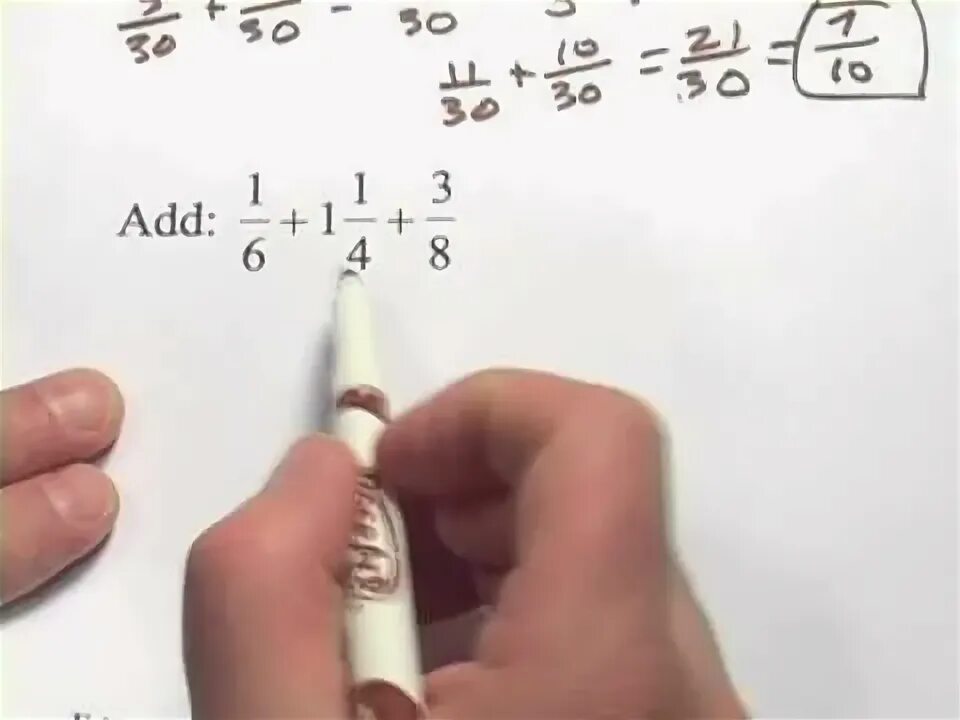 /30 + /30 = /30
11/30 + 10/30 = 21/30 = 7/10
Add: 1/6 + 1 1/4 + 3/8